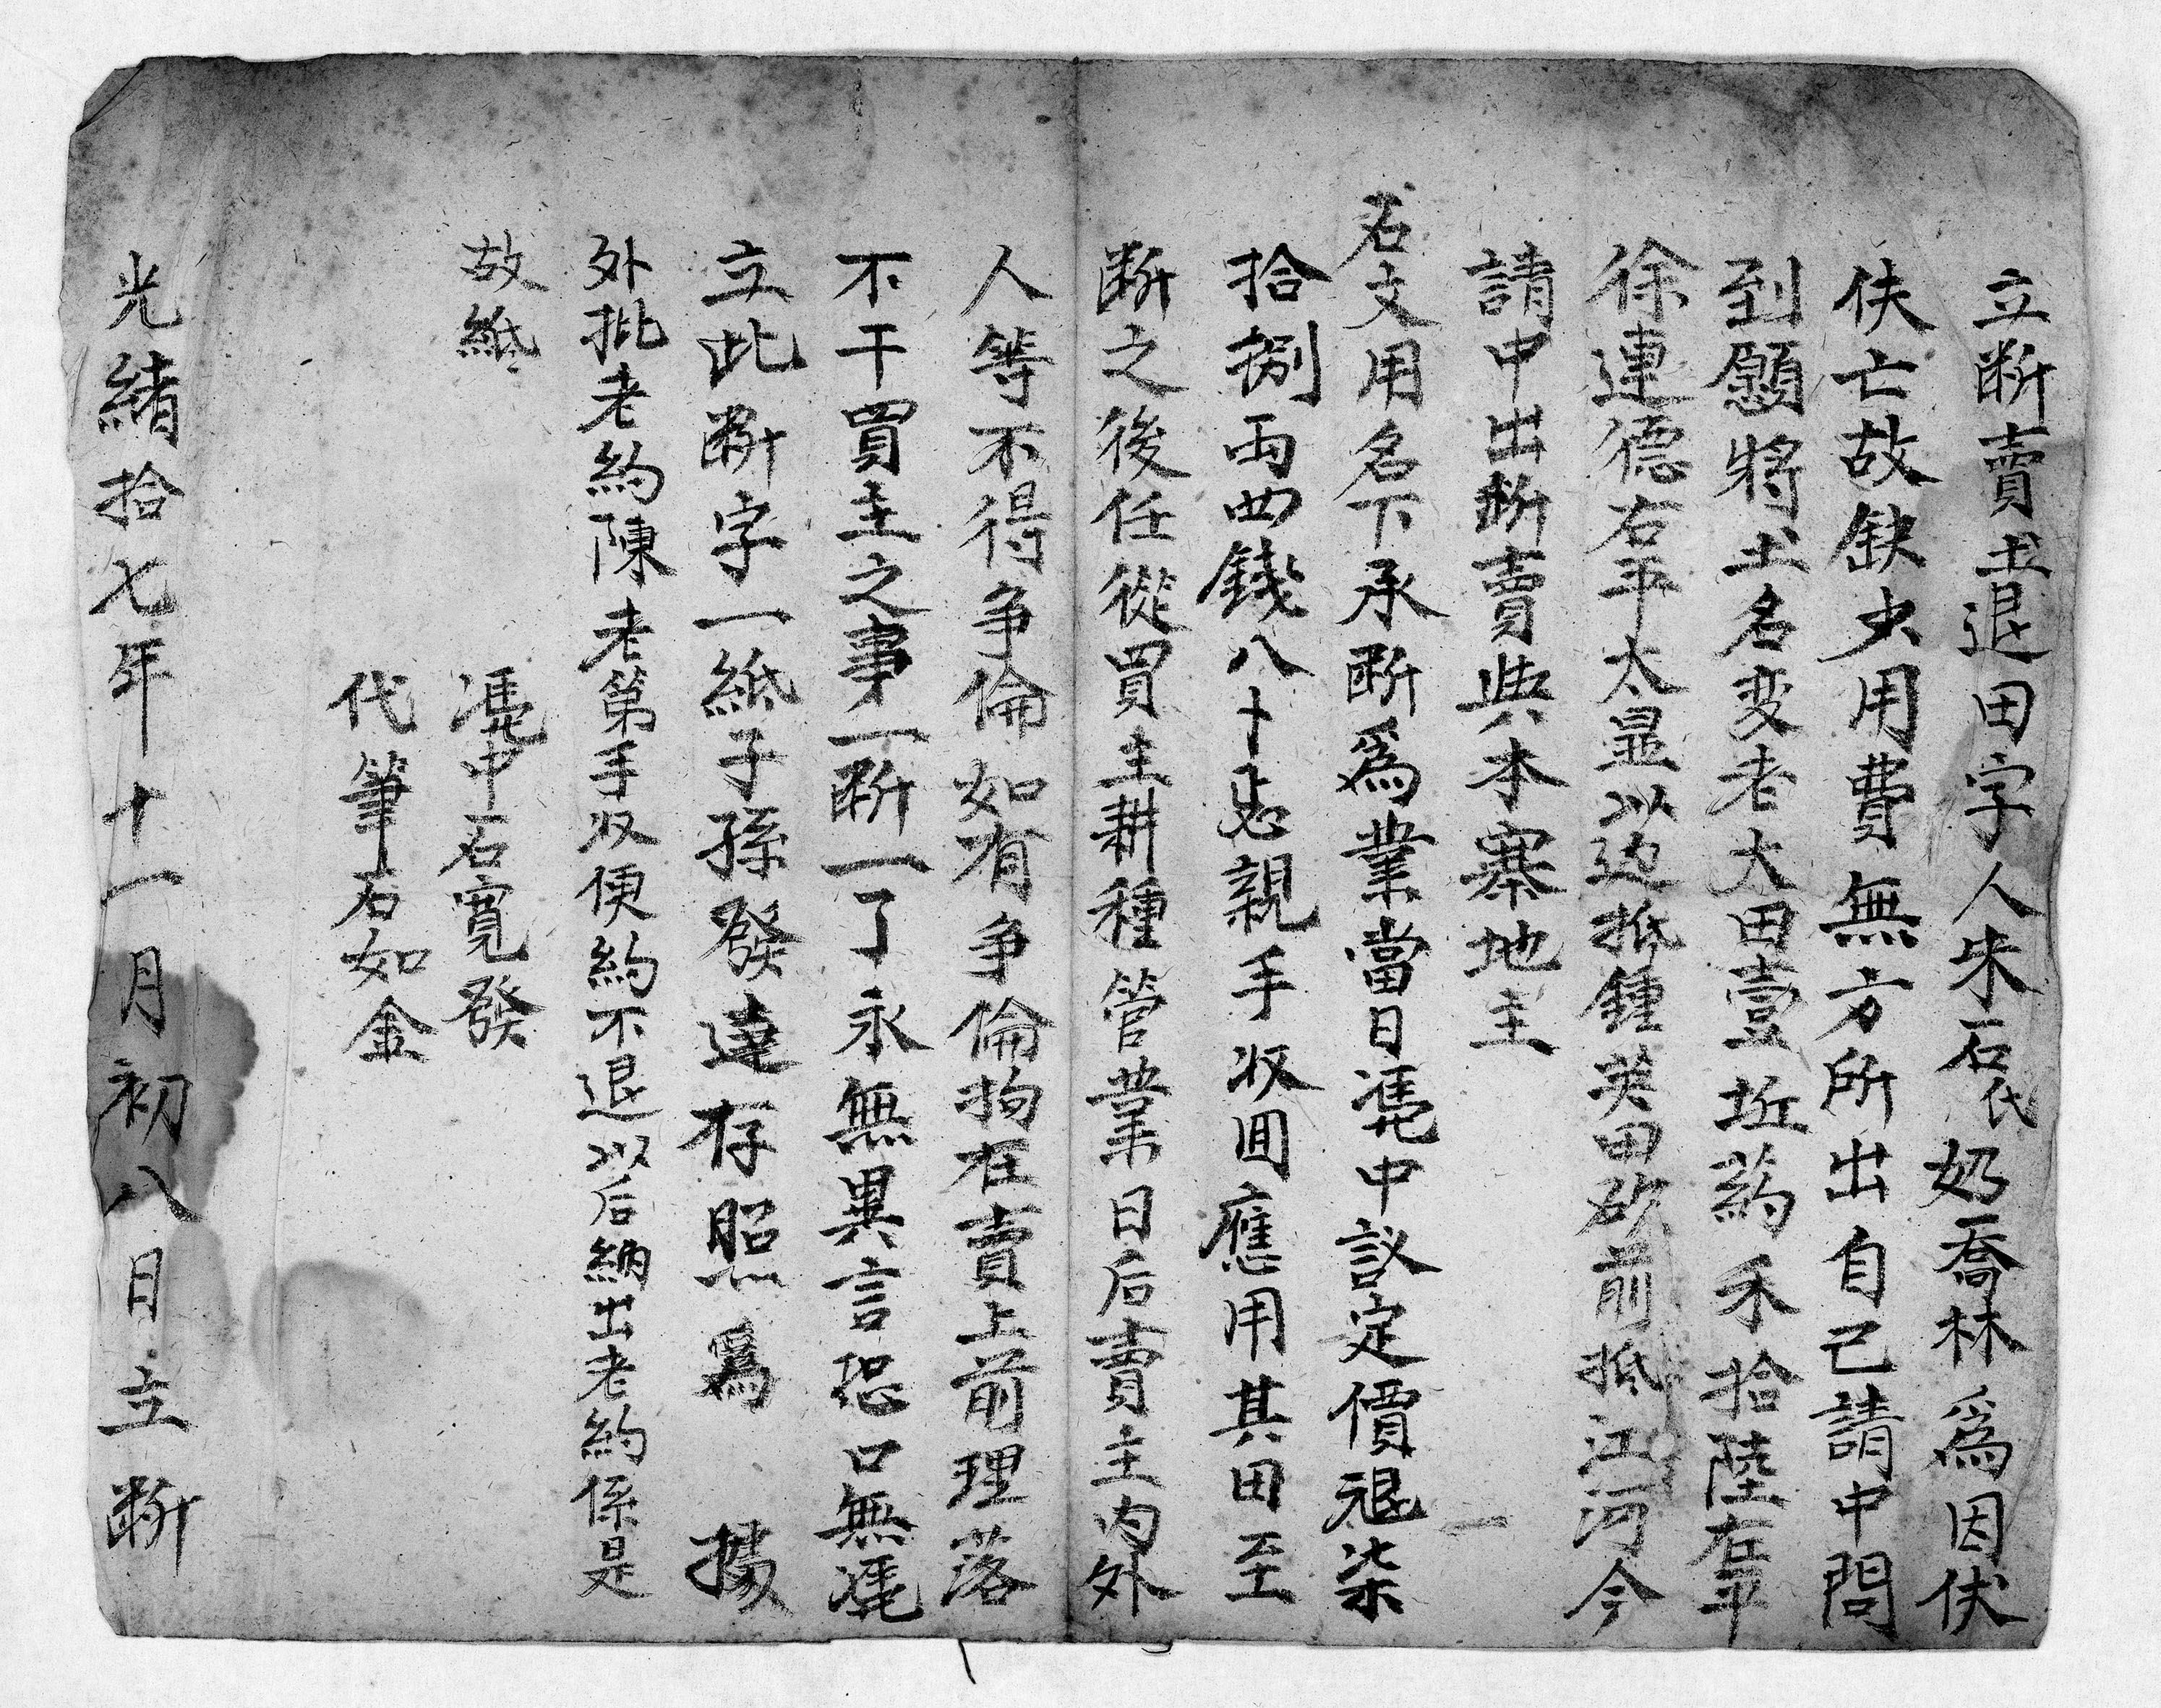 立断賣𡈽退田字人朱石氏奶喬林爲因伏
伕亡故缺少用費無方所出自己請中問
到願將𡈽名变老大田壹坵葯禾拾陸在平
徐連德右平太显以边抵鍾英田砍前抵江河今
請中出断賣與本寨地主
石文用名下承断爲業當日凴中議定價銀柒
拾捌両四錢八卜艮親手収囬應用其田至
断之後任從買主耕種管業日后賣主内外
人等不得争倫如有争倫拘在賣上前理落
不干買主之事一断一了永無異言恐口無凴
立此断字一紙子孫發達存照爲據
外批老約陳老第手収便約不退以后納出老約係是
故紙
凴中石寬發
代筆石如金
光緒拾七年十一月初八日立断